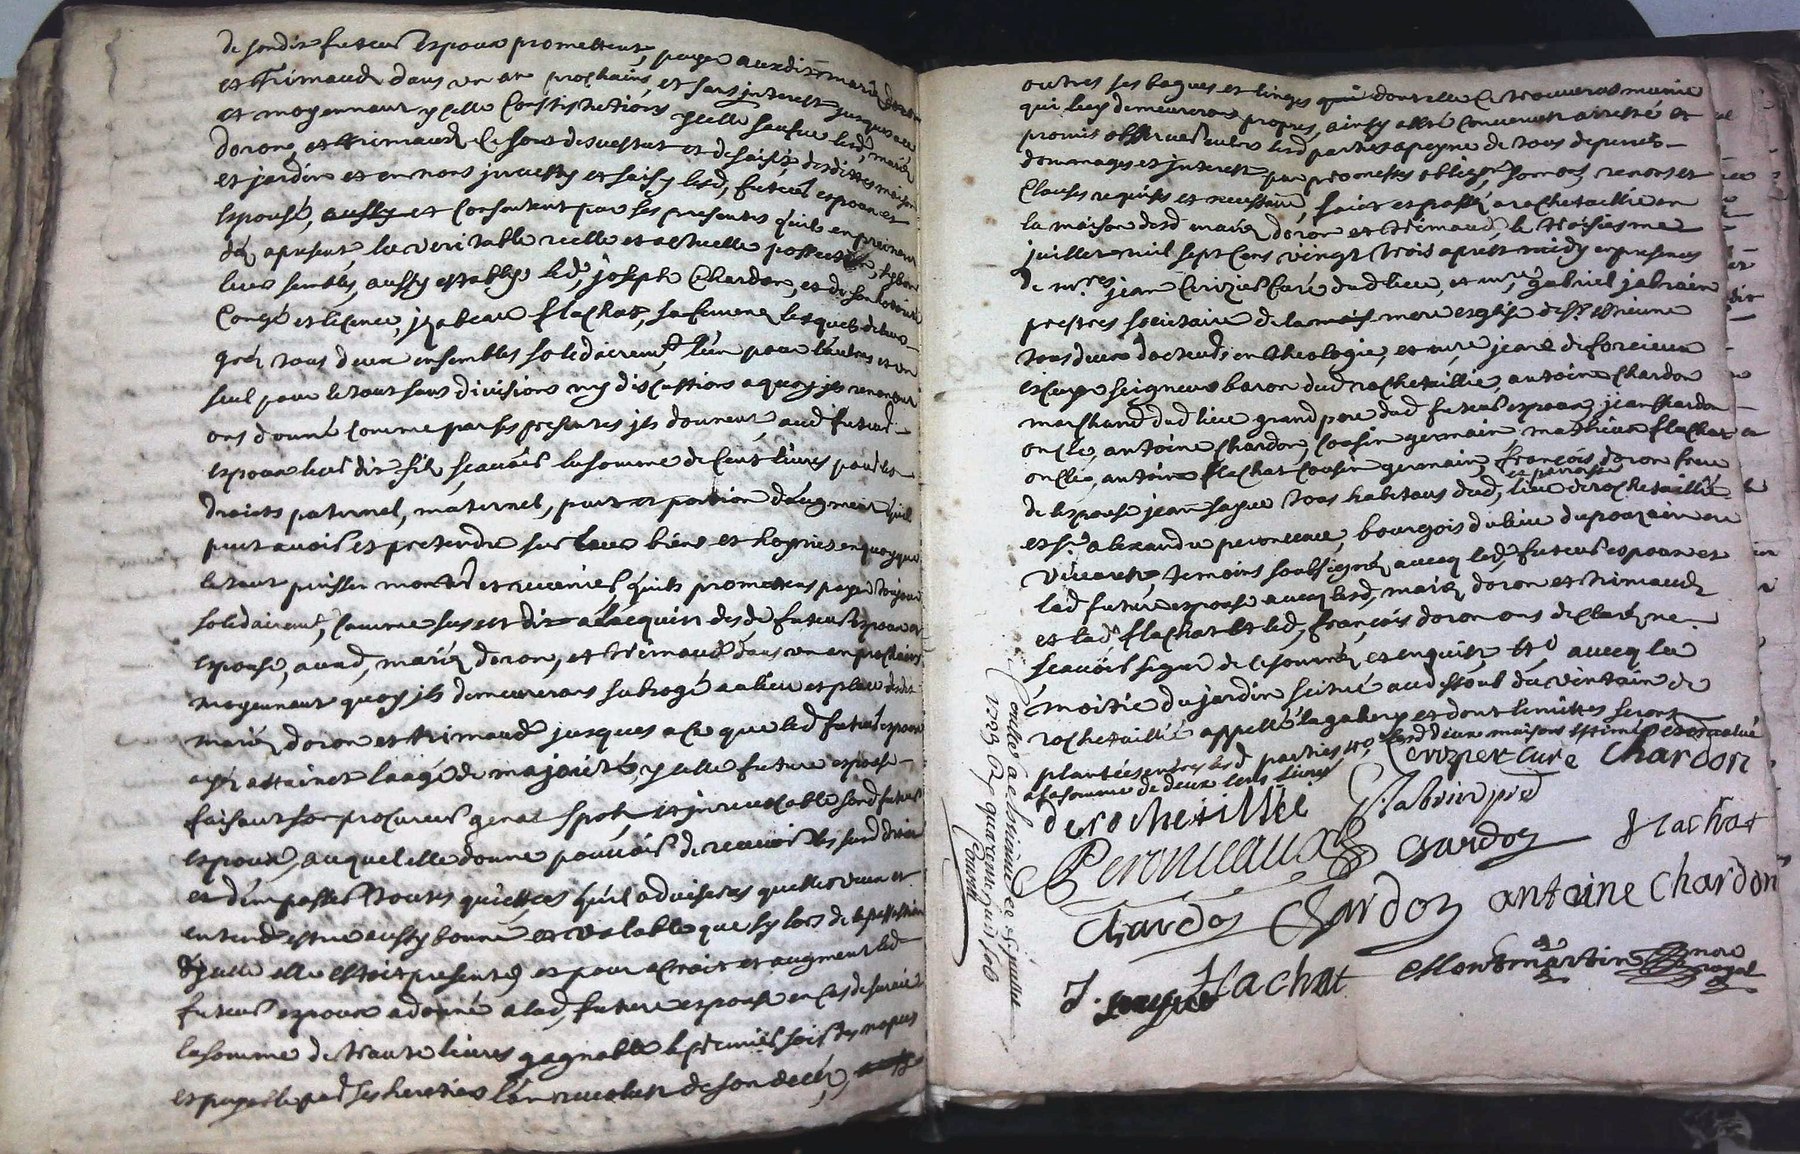 de sondit futeur espoux promettent, payer auxdits mariés doron
et Trimaud dans un an prochains, et sans interest jusques a ce
et moyennant ycelle Constitutions ycelle lesd, mariés
doron, et trimaud, ce sont desvestut et desaisis, desdittes maisons
et jardin et en nons jnvesty et saisy lesd, futeur espoux et
espouse, et Consentent par ses presentes quils en prennent
des apresent, la veritable reelle et actuelle possession,
leur semblés, aussy estably led, joseph Chardon, et de son
Congé et licence, jzabeau flachat, sa femme lesquels de leurs
grés tous deux ensembles solidairemt l'un pour l'autres et un
seul pour le tout sans divisions ny discutions a quoy jls renoncent
ons donné Comme par ses presentes jls donnent, aud futeur
espoux leur dit fils, scavoir la somme de Cent livres pour les
droicts paternel, maternel, part et portion d'augment quil
peut avoir et pretendre sur leurs biens et hoyries en quoy que
le tout puisse monter et revenir quils promettens payer
solidairemt, Comme sus est dit a l'acquist desd futeur espoux et
espouse, auxd, mariés doron, et trimaud dans un an prochains
moyennant quoy jls demeurerons subrogé au lieu et place desdits
mariés doron et trimaud jusques a ce que led futeur espoux
aye attainct laage de majorité, ycelle future espouse
faisant son procureur genal spal et jrrevocable sond futeur
espoux, auquel elle donne pouvoir de recevoir les susd droicts
et d'en passer toutes quiettces qu'il advisera quelle veux et
entend estre aussy bonne et valable que sy lors de la passation
d'ycelle elle estoit presente et pour acroit et augment led
futeur espoux a donné a lad, future espouse en Cas de survie
la somme de trante livres gagnable
et payable par ses heretiers l'an revolut de son decés,
outres ses bagues et linges dont elle ce trouveras munie
qui luy demeureron propres, ainsy a esté Convenut arresté et
promis observer entre lesd parties a peyne de tous depens
dommages et interest par promettes obligon somons renons et
Clauses requises et necessaire, faict et passé, a rochetaillie en
la maison desd mariés doron et trimaud, le troisiesme
juillet mil sept Cens vingt trois apres midy en presences
de mres jean Crizier Curé dud lieu, et mre gabriel jabrein
prestres socictaire de la mere esglise de st estienne
tous deux docteurs en theologie, et mre jean de forcieux
escuyer seigneur baron dud rochetaillie, antoine chardon
marchand dud lieu grand pere dud futeur espoux, jean chardon
oncle, antoine chardon, Cousin germain mathieu flachat
oncle, antoine flachat Cousin germain, françois doron frere
de lespouse jean tous habitans dud, lieu et parroisse de rochetaillie
et sr alexandre peronneaux, bourgois du lieu du pouzain en
Vivarets, temoins soubsignés avecq led, futeur espoux et
lad future espouse avecq lesd, mariés doron et trimaud
et lad flachat et led, françois doron ons declarés ne
scavoir signer de ce sommés, et enquist etc avecq la
moitié du jardin scitué au dessoub du vintain de
rochetaillié appellé la gallery et dont limittes seront
plantées entres lesd parties etc lesd deux maisons estimé et evalué
a la somme de deux cens livres
Crozier Cure Chardon
derochetillie Jabrin pre
Peronneaux Chardon Flachat
Chardon Chardon antoine Chardon
J. Flachat Montmartin nore royal
Conllé a st estienne ce juillet
1723 R quarente huit sols